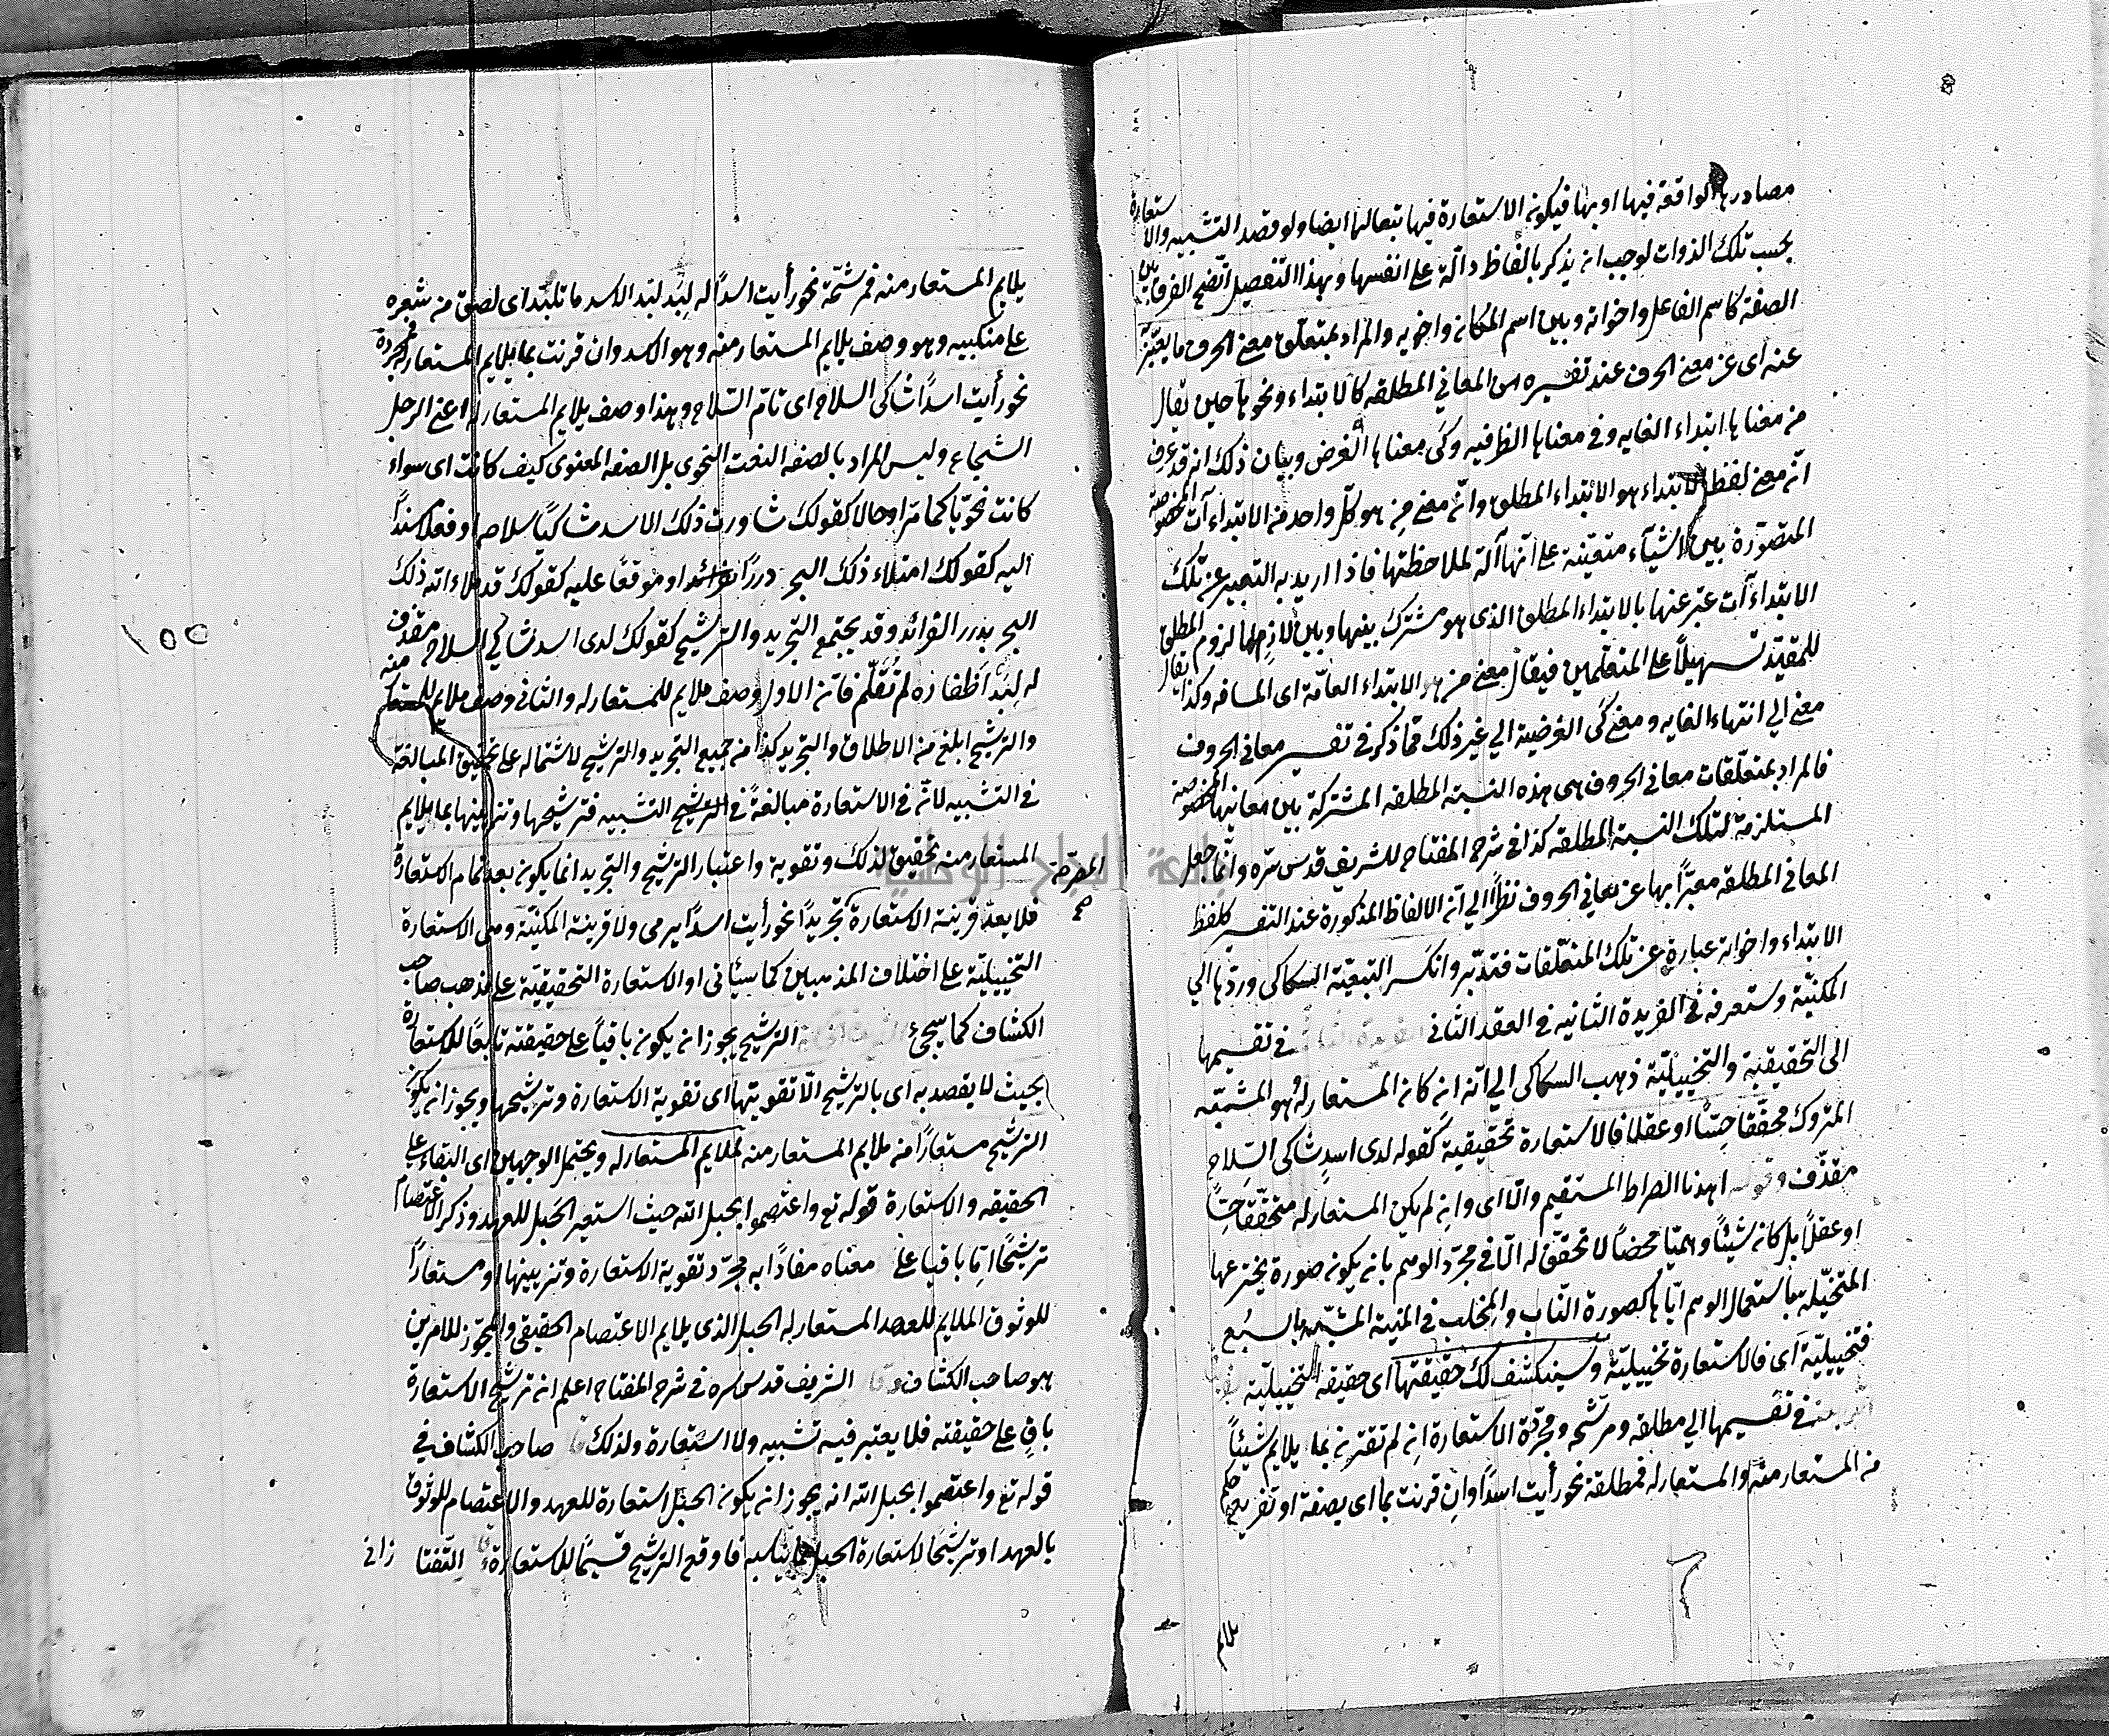 مصادرها الواقعة فيها او بها فيكون الاستعارة فيها تبعا لها ايضا ولو قصد التشبيه والاستعارة
بحسب تلك الذوات لوجب ان يذكر بالفاظ دالّة على انفسها وبهذا التفصيل اتّضح الفرق بين
الصفة كاسم الفاعل واخواته وبين اسم المكان واخويه والمراد بمتعلّق معنى الحرف ما يعبّر
عنه اى عن معنى الحرف عند تفسيره من المعاني المطلقه كالابتداء ونحوها حين يقال
من معناها ابتداء الغايه وفى معناها الظرفيه وكى معناها الغرض وبيان ذلك انه قد عرف
انّ معنى لفظ الابتداء هو الابتداء المطلق وانّ معنى من هو كلّ واحد من الابتداءآت المخصوصة
المتصوّرة بين الشيآء متعيّنة على انّها آلة لملاحظتها فاذا اريد به التعبير عن تلك
الابتداءآت عبّر عنها بالابتداء المطلق الذى هو مشترك بينها وبين لازم لها لزوم المطلق
للمقيّد تسهيلاً على المتعلّمين فيقال معنى من هو الابتداء العامّة اى المسافه وكذا يقال
معنى الي انتهاء الغايه ومعنى كَى الغرضية الي غير ذلك ممّا ذكر فى تفسير معاني الحروف
فالمراد بمتعلّقات معاني الحروف هى هذه النسبة المطلقه المشتركة بين معانيها المخصوصة
المستلزمة لتلك النسبة المطلقه كذا فى شرح المفتاح للشريف قدس سّره وانّما جعل
المعاني المطلقه معبّراً بها عن معاني الحروف نظراً الي انّ الالفاظ المذكورة عند التفسير كلفظ
الابتداء واخواته عبارة عن تلك المتعلّقات فتدبّر وانكر التبعيّة السكاكى وردّها الي
المكنيّة وستعرفه فى الفريدة الثانيه فى العقد الثانى الفريدة الثالثة فى تقسيمها
الى التحقيقية والتخييليّة ذهب السكاكى الي انّه ان كان المستعار له هو المشبّه
المتروك محقّقا حِسّاً او عقلا فالاستعارة تحقيقية كقوله لدى اسدٍ شاكى السِلاح
مقذّف وقوله اهدنا الصراط المستقيم والّا اى وان لم يكن المستعار له متحقّقا حِسّاً
او عقلاً بل كان شيئاً وهميّا محضاً لا تحقّق له الّا فى مجرّد الوهم بان يكون صورة يخترعها
المتخيّله باستعمال الوهم ايّاها كصورة النّاب والمِخلب فى المنيّة المشبّهه بالسبُع
فتخييليّة اى فالاستعارة تخييليّة وسينكشف لك حقيقتها اى حقيقه التخييليّة
فى تقسيمها الي مطلقه ومرشّحه ومجرّدة الاستعارة اِن لم تقترن بما يلايم شيئاً
من المستعار منه والمستعار له فمطلقة نحو رأيت اسداً وان قرنت بما اى بصفة او تفريع
يلايم
يلايم المستعار منه فمرشّحة نحو رأيت اسداً له لِبَد لبَد الاسد ما تلبّد اى لصق من شعره
على منكبيه وهو وصف يلايم المستعار منه وهو الاسد وان قرنت بما يلايم المستعار له فمجردة
نحو رأيت اسداً شاكى السلاح اى تامّ السّلاح وهذا وصف يلايم المستعار له اعنى الرجل
الشجاع وليس المراد بالصفه النعت النحوى بل الصفه المعنوى كيف كانت اى سواء
كانت نحويّا كما مّر او حالا كقولك شاورت ذلك الاسد شاكياً سلاحه او فعلا مسنداً
اليه كقولك امتلاء ذلك البحر درراً فوائد او موقعًا عليه كقولك قد ملاء الله ذلك
البحر بدرر الفوائد وقد يجتمع التجريد والترشيح كقولك لدى اسد شاكي السلاح مقذف
له لِبَد اَظفاره لم تُقَلَّم فانّ الاول وصف ملايم للمستعار له والثانى وصف ملايم للمستعار منه
والترشيح ابلغ من الاطلاق والتجريد كذا من جميع التجريد والترشيح لاشتماله على تحقيق المبالغة
فى التشبيه لانّ فى الاستعارة مبالغةً فى التشبيه فترشيحها وتزيينها بما يلايم
المستعار منه تحقيق لذلك وتقوية واعتبار الترشيح والتجريد انما يكون بعد تمام الاستعارة
المصّرحة
فلا يعدّ قرينة الاستعارة تجريداً نحو رأيت اسداً يرمى ولا قرينة المكنيّة وهى الاستعارة
التخييليّة على اختلاف المذهبين كما سيأتى او الاستعارة التحقيقيّة على مذهب صاحب
الكشاف كما سيجئ الترشيح يجوز ان يكون باقياً على حقيقته تابعًا للاستعارة
بحيث لا يقصد به اى بالترشيح الّا تقويتها اى تقوية الاستعارة وترشيحها ويجوز ان يكون
الترشيح مستعارًا من ملايم المستعار منه لملايم المستعار له ويحتمل الوجهين اى البقاء على
الحقيقه والاستعارة قوله تع واعتصموا بحبل الله حيث استعير الحَبل للعهد وذكر الاعتصام
ترشيحًا اِمّا باقيا على معناه مفاداً به مجرّد تقوية الاستعارة وتزيينها او مستعاراً
للوثوق الملايم للعهد المستعار له الحبل الذى يلايم الاعتصام الحقيقى والمجوّز للامرين
هو صاحب الكشّاف الشريف قدس سره فى شرح المفتاح اعلم ان ترشيح الاستعارة
باقٍ على حقيقته فلا يعتبر فيه تشبيه ولا استعارة ولذلك صاحب الكشّاف في
قوله تع واعتصموا بحبل الله انه يجوز ان يكون الحبل استعارة للعهد والاعتصام للوثوق
بالعهد او ترشيحًا لاستعارة الحبل بما يناسبه فاوقع الترشيح قسيمًا للاستعارة التّفتازانى
١٥٥
جامعة النجاح الوطنية